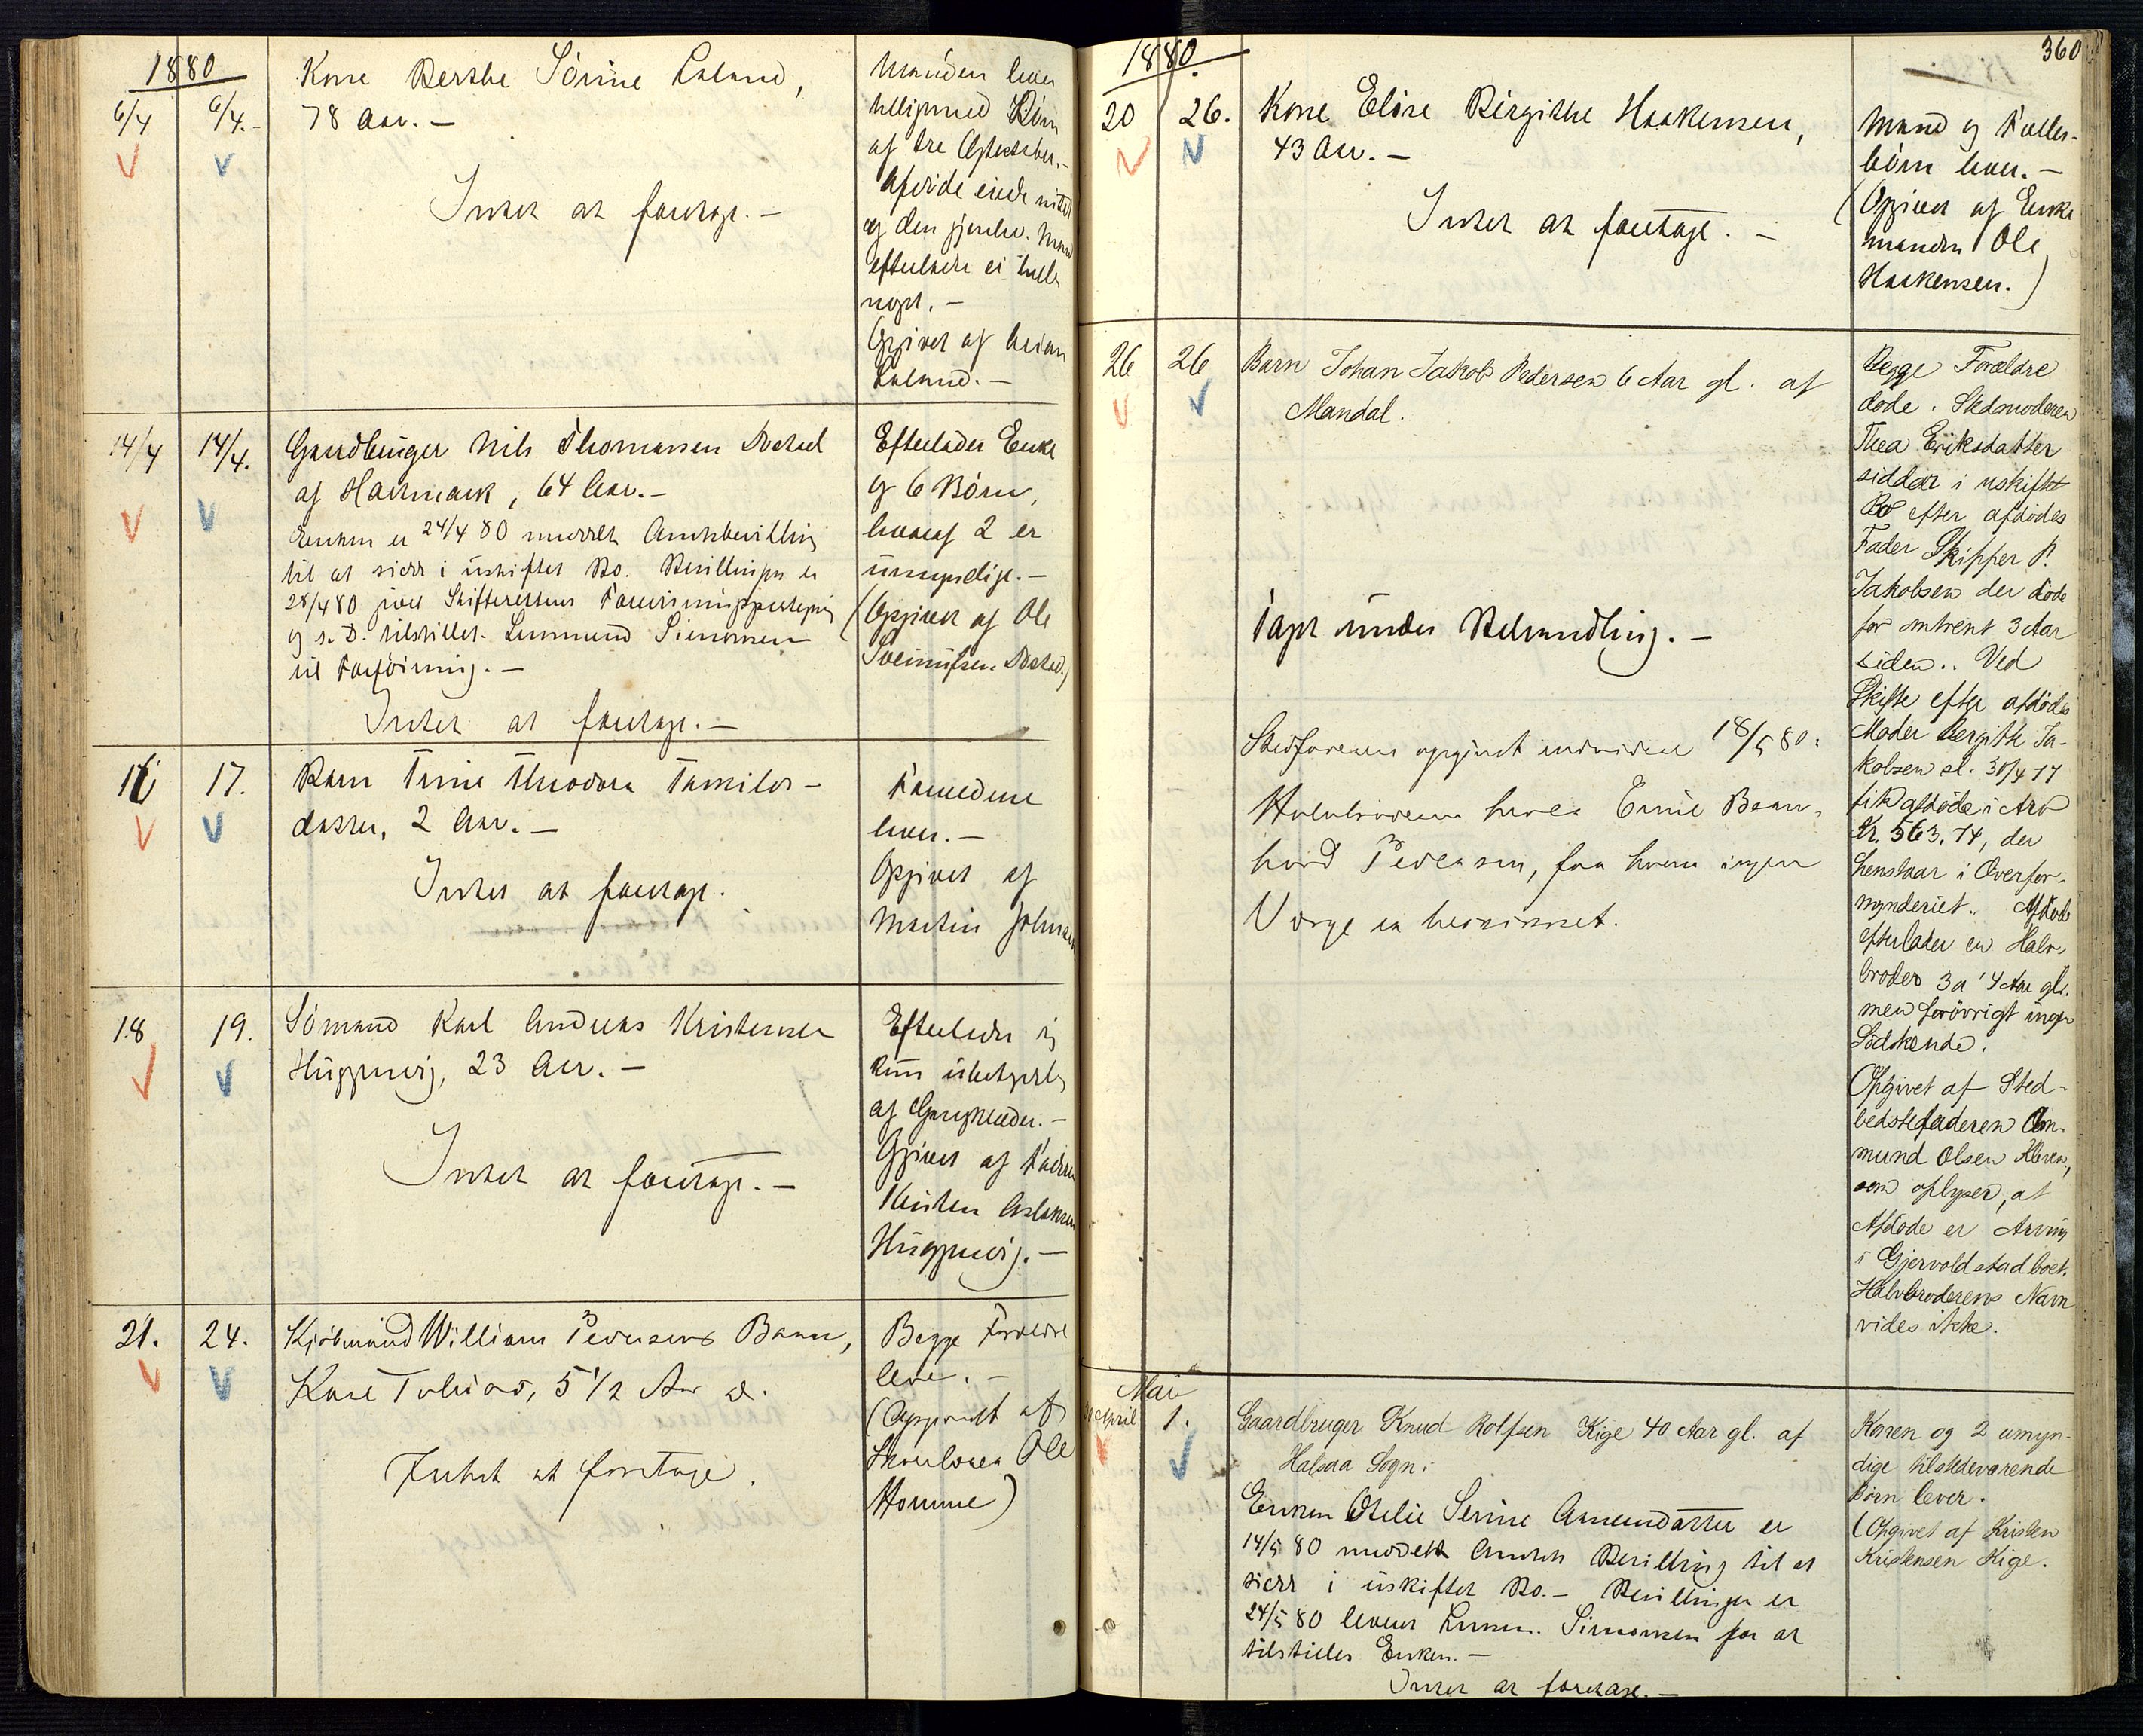 1880
6/4 6/4.-
Kone Berthe Sörine Laland,
78 Aar. -
Intet at foretage. -
Manden lever
tilligemed Börn
af tre Ægteskaber. -
Afdöde eiede intet
og den gjenlev. Mand
efterlader ei heller
noget. -
Opgivet af
Laland. -
14/4 14/4.
Gaardbruger Nils Thomassen
af Harkmark, 64 Aar. -
Enken er 24/4 80 meddelt Amtsbevilling
til at sidde i uskiftet Bo. Bevillingen er
28/4 80 Skifterettens
og s. D. tilstillet Lensmand Simonsen
til Forföining. -
Intet at foretage. -
Efterlader Enke
og 6 Börn,
hvoraf 2 er
umyndige. -
(Opgivet af Ole
16 17.
Barn Trine Theodora
datter, 2 Aar. -
Intet at foretage.
Forældrene
lever. -
Opgivet af
Martin Johnsen
18 19.
Sömand Karl Andreas Kristensen
23 Aar. -
Intet at foretage. -
Efterlader sig
kun ubetydelig
af Gangklæder. -
Opgivet af Faderen
Kristen Aslaksen
21. 24.
Kjöbmand William Pedersens Barn,
Karl Tobias, 5 1/2 Aar
Intet at foretage.
Begge Forældre
lever. -
(Opgivet af
Ole
Homme)
1880. 360
20 26.
Kone Elise Birgithe Haakensen,
43 Aar. -
Intet at foretage. -
Mand og Fælles-
börn lever. -
(Opgivet af Enke
manden Ole
Haakensen.)
26 26
Barn Johan Jakob Pedersen 6 Aar gl. af
Mandal.
Taget under Behandling. -
Stedfaderen opgivet 18/5 80:
Halvbroderen heder Emil Bern-
hard Pedersen, for hvem ingen
Værge er beskikket.
Begge Forældre
döde. Stedmoderen
Thea Eriksdatter
sidder i uskiftet
Bo efter afdödes
Fader Skipper P.
Jakobsen der döde
for omtrent 3 Aar
siden. Ved
Skifte efter afdödes
Moder Bergithe Ja-
kobsen sl. 30/4 77
fik afdöde i Arv
Kr. 563.74, der
henstaar i Overfor-
mynderiet. Afdöde
efterlader en Halv-
broder 3 a 4 Aar gl.
men forövrigt ingen
Södskende.
Opgivet af Sted-
bedstefaderen Om-
mund Olsen
som oplyser, at
Afdöde er Arving
i Gjervoldstadboet.
Halvbroderens Navn
vides ikke.
Mai
April 1.
Gaardbruger Knud Rolfsen Kige 40 Aar gl. af
Halsaa Sogn.
Enken Otelie Serine Anensdatter er
14/5 80 meddelt Amtets Bevilling til at
sidde i uskiftet Bo. - Bevillingen er
24/5 80 leveret Lensm. Simonsen for at
tilstilles Enken. -
Intet at foretage. -
Konen og 2 umyn-
dige tilstedeværende
Börn lever.
(Opgivet af Kristen
Kristensen Kige.